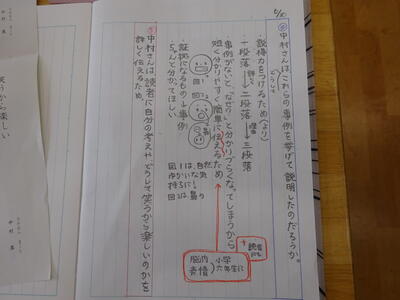 6/20
問 中村さんは、これらの事例を挙げて説明したのだろうか。
どうして
・説得力をつけるため(より)
一段落→二段落→三段落
事例がないと、「なぜ?」と分かりづらくなってしまうから
短く分かりやすく簡単に伝えるため
図1
図2
・証拠になるもの→事例
ちゃんと分かってほしい
図1は、自然
図2は、鼻の
脳内
表情
小学六年生に
+読者にも
中村さんは読者に自分の考えやどうして笑うから楽しいのかを
詳しく伝えるため。
笑うから楽しい
中村 真
中村 真